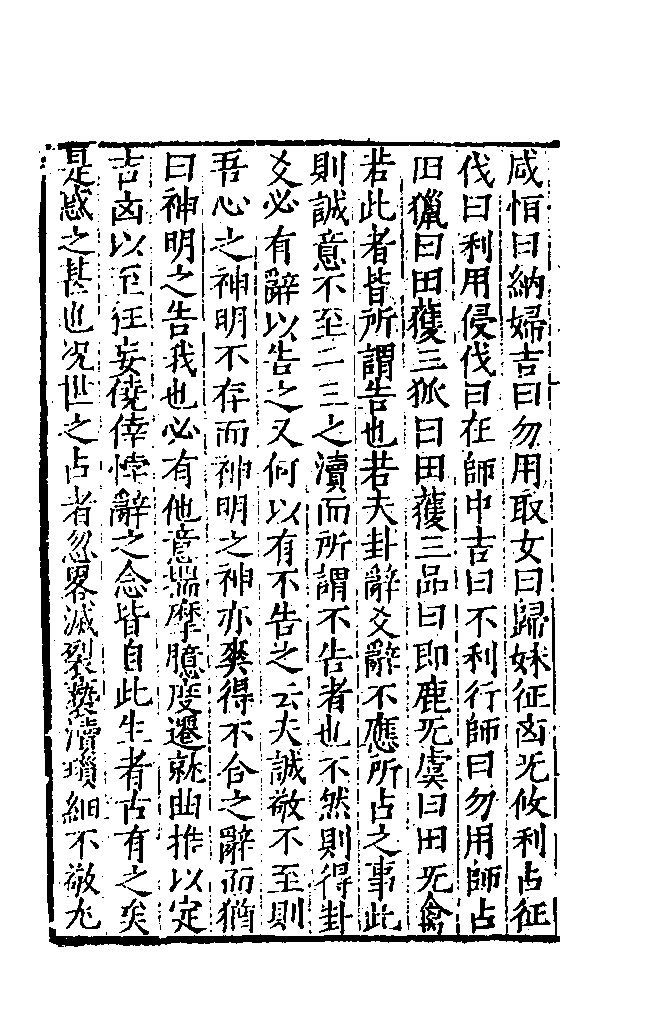 咸恒曰納婦吉曰勿用取女曰歸妹征凶无攸利占征
伐曰利用侵伐曰在師中吉曰不利行師曰勿用師占
田獵曰田獲三狐曰田獲三品曰即鹿无虞曰田无禽
若此者皆所謂告也若夫卦辭爻辭不應所占之事此
則誠意不至二三之瀆而所謂不告者也不然則得卦
爻必有辭以告之又何以有不告之云夫誠敬不至則
吾心之神明不存而神明之神亦爽得不合之辭而猶
曰神明之告我也必有他意揣摩臆度遷就曲推以定
吉凶以至狂妄僥倖悖辭之念皆自此生者古有之矣
是惑之甚也况世之占者忽畧滅裂䙝瀆瑣細不敬尤